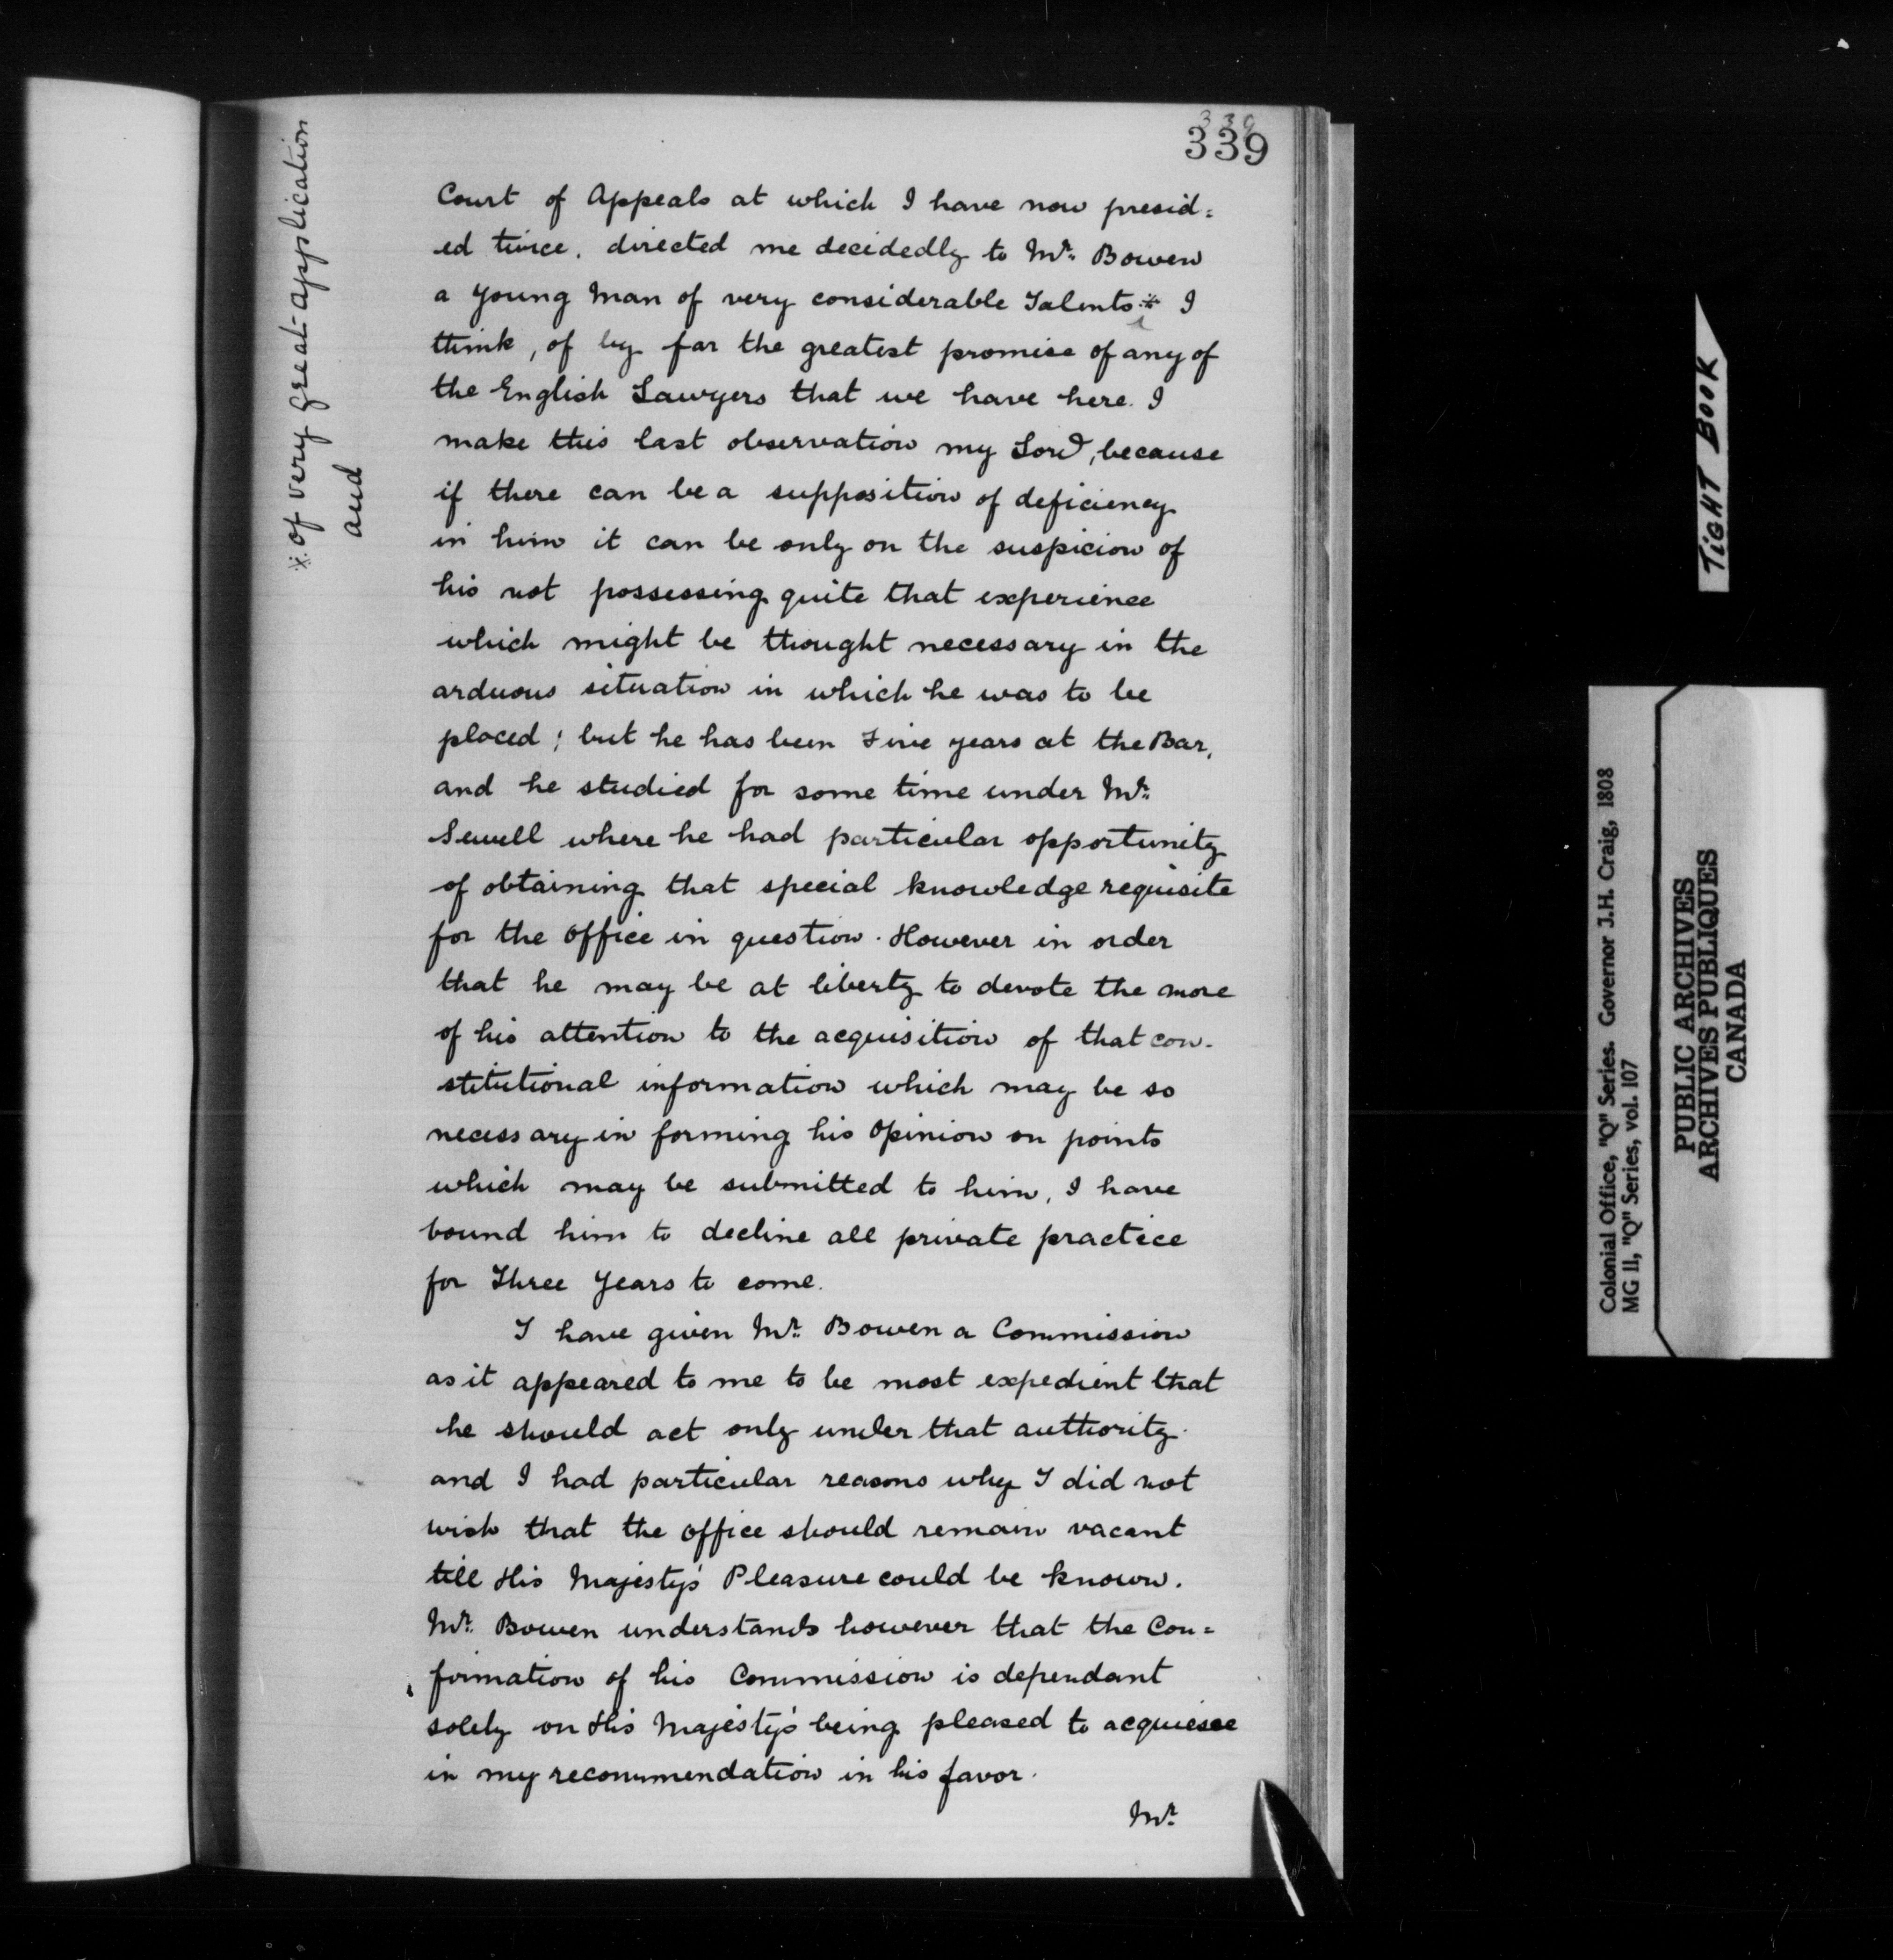 339
339
Court of Appeals at which I have now presid=
ed twice, directed me decidedly to Mr. Bowen
a Young Man of very considerable Talents * I
think, of by far the greatest promise of any of
the English Lawyers that we have here. I
make this last observation my Lord, because
if there can be a supposition of deficiency
in him it can be only on the suspicion of
his not possessing quite that experience
which might be thought necessary in the
arduous situation in which he was to be
placed; but he has been Five years at the Bar,
and he studied for some time under Mr.
Sewell where he had particular opportunity
of obtaining that special knowledge requisite
for the office in question. However in order
that he may be at liberty to devote the more
of his attention to the acquisition of that con-
stitutional information which may be so
necessary in forming his Opinion on points
which may be submitted to him, I have
bound him to decline all private practice
for Three Years to come.
I have given Mr. Bowen a Commission
as it appeared to me to be most expedient that
he should act only under that authority
and I had particular reasons why I did not
wish that the office should remain vacant
till His Majesty's Pleasure could be known.
Mr. Bowen understands however that the Con=
firmation of his Commission is dependant
solely on His Majesty's being pleased to acquiesce
in my recommendation in his favor.
Mr.
* of very great application
and
TIGHT BOOK
Colonial Office, "Q" Series. Governor J.H. Craig, 1808
MG 11, "Q" Series, vol. 107
PUBLIC ARCHIVES
ARCHIVES PUBLIQUES
CANADA